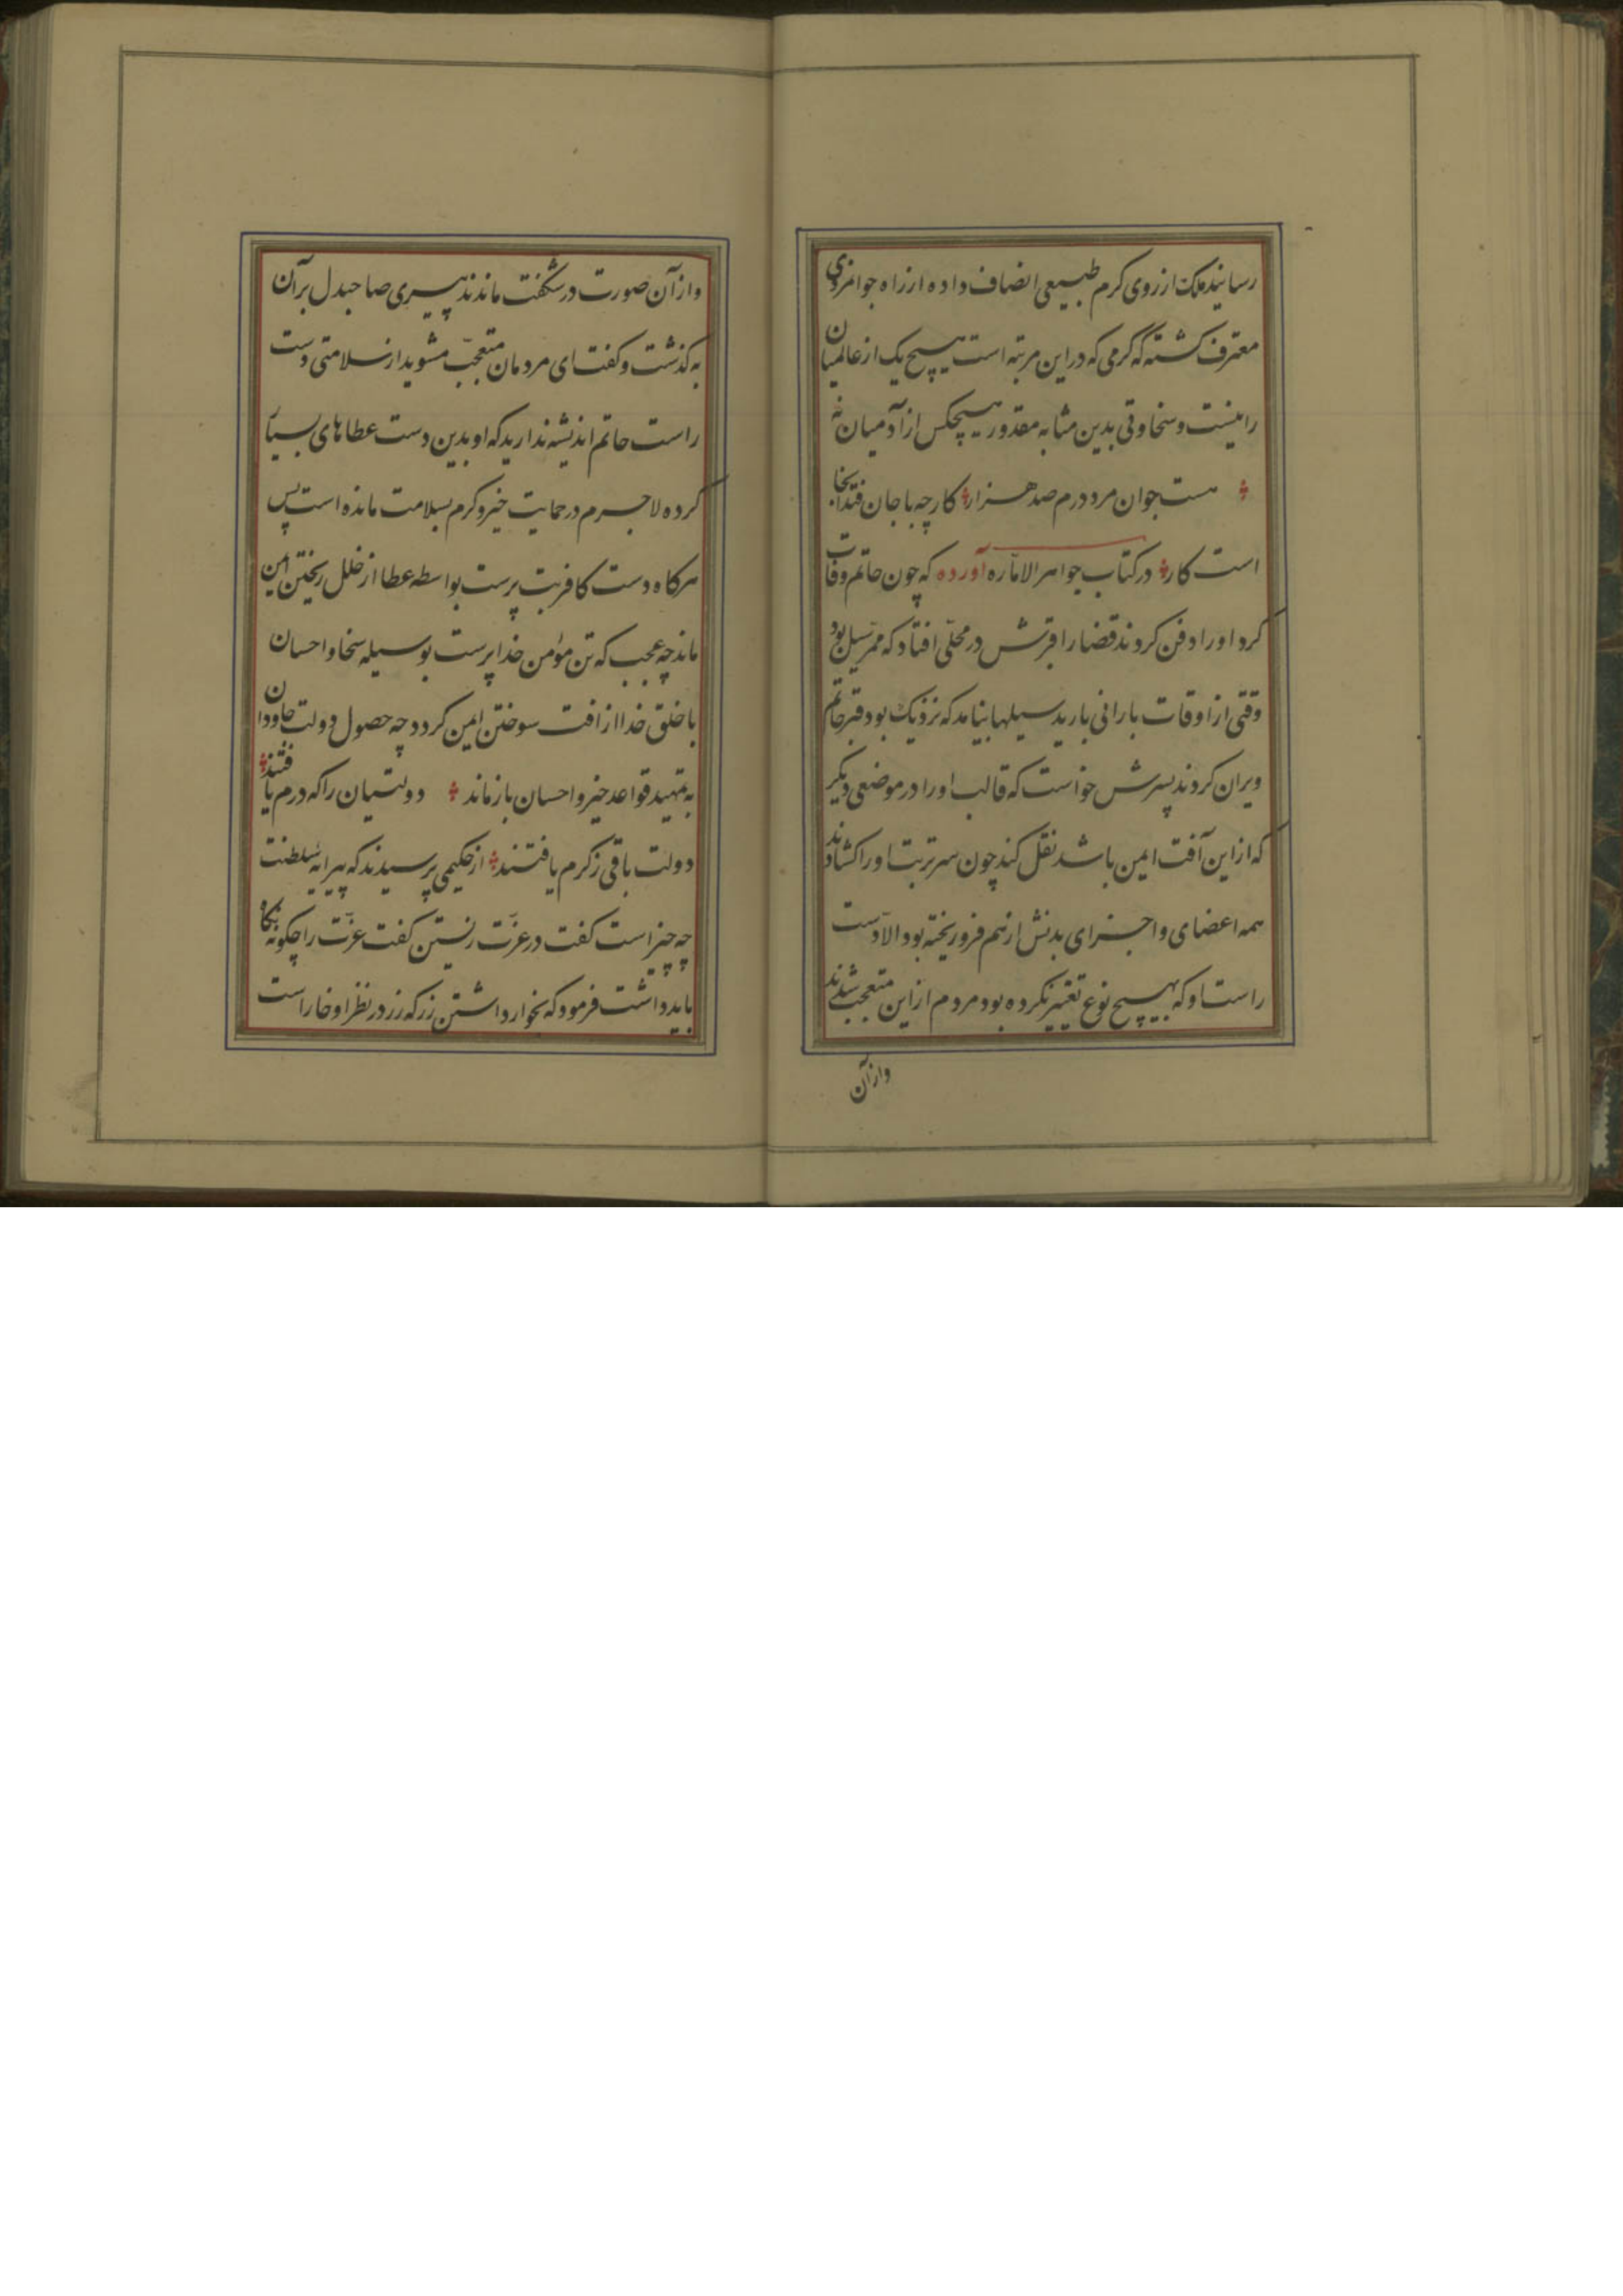 رسانید ملک از روی کرم طبیعی انصاف داده از راه جوانمردی
معترف گشته که کرمی که در این مرتبه است هیچ یک از عالمیان
را نیست و سخاوتی بدین مثابه مقدور هیچکس از آدمیان نه
هست جوان مرد درم صد هزار کار چه با جان فتد آنجا
است کار در کتاب جواهر الاماره آورده که چون حاتم وفات
کرد او را دفن کردند قضا را قبرش در محلی افتاد که ممر سیل بود
وقتی از اوقات بارانی بارید سیلها بیامد که نزدیک بود قبر حاتم
ویران کردند پسرش خواست که قالب او را در موضعی دیگر
که از این آفت ایمن باشد نقل کند چون سر تربت او را کشادند
همه اعضای و اجزای بدنش از هم فرو ریخته بود الا دست
راست او که بهیچ نوع تغییر نکرده بود مردم از این متعجب شدند
وازآن
و از آن صورت در شکفت ماندند پیری صاحبدل بر آن
به کذشت و کفت ای مردمان متعجب مشوید از سلامتی دست
راست حاتم اندیشه ندارید که او بدین دست عطاهای بسیار
کرده لاجرم در حمایت خیر و کرم بسلامت مانده است پس
هرکاه دست کافر بت پرست بواسطه عطا از خلل ریختن ایمن
ماند چه عجب که تن مؤمن خدا پرست بوسیله سخا و احسان
با خلق خدا از افت سوختن ایمن کردد چه حصول دولت جاودان
به تمهید قواعد خیر و احسان باز ماند دولتیان را که درم یافتند
دولت باقی ز کرم یافتند از حکیمی پرسیدند که پیرایه سلطنت
چه چیز است کفت در عزت زیستن کفت عزت را چکونه نکاه
باید داشت فرمود که بخوار داشتن زر که زر در نظر او خار است